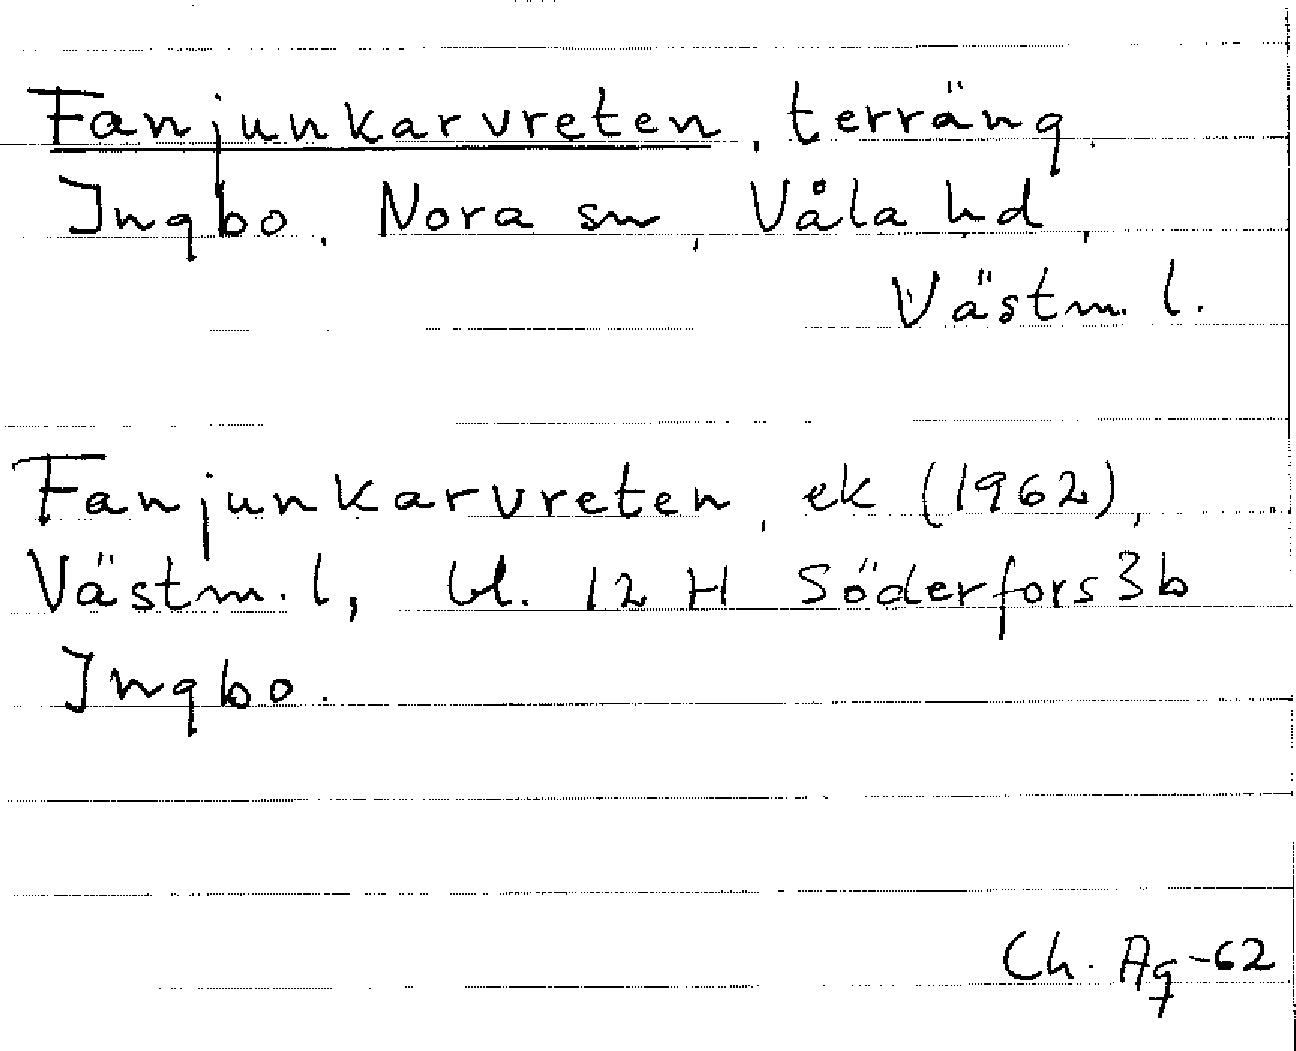 Fanjunkarvreten, terräng.
Ingbo, Nora sn, Våla hd,
Västm. l.
Fanjunkarvreten, ek (1962),
Västm. l, bl. 12 H Söderfors 3b
Ingbo.
Ch. Ag -62